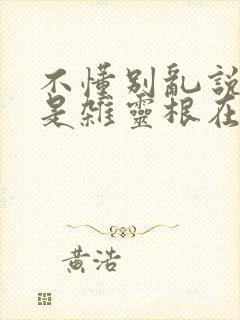 不懂別亂說
是雜靈根在
黃浩